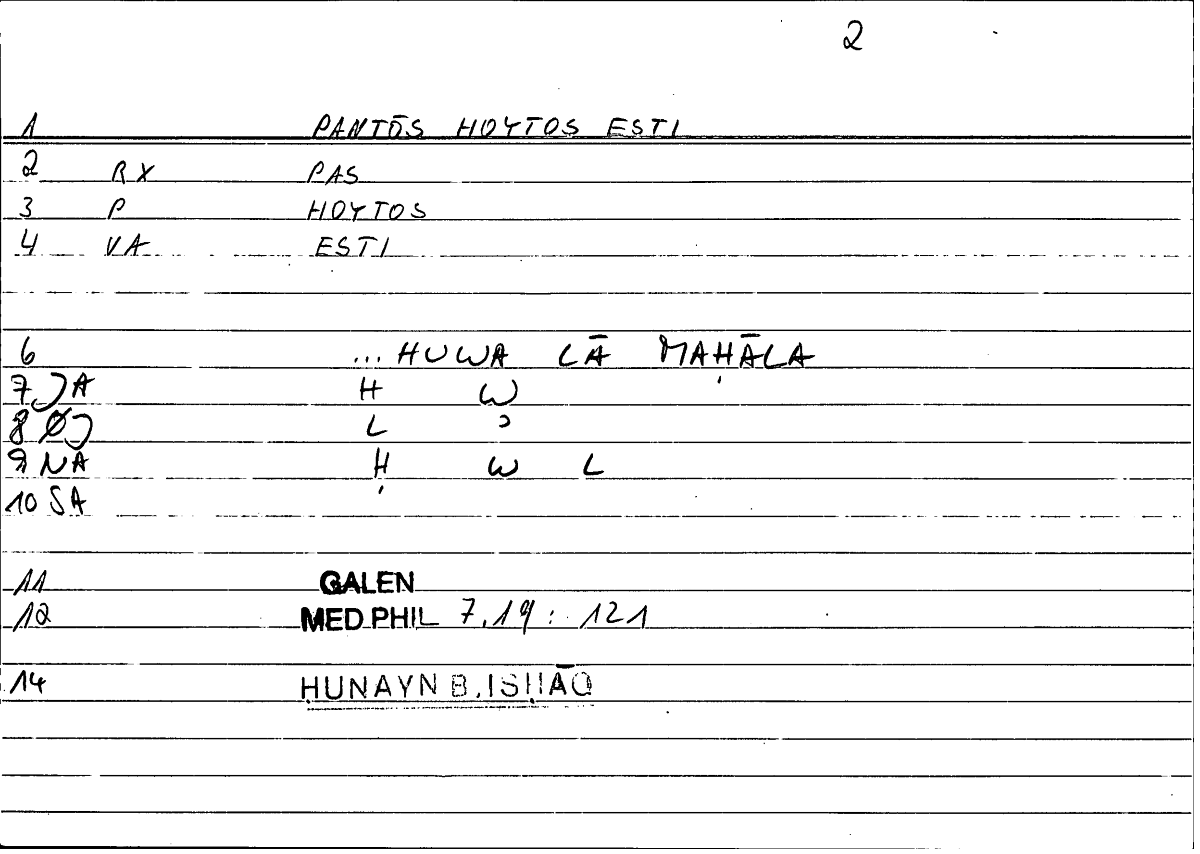 2
1 PANTŌS HOYTOS ESTI
2 RX PAS
3 P HOYTOS
4 VA ESTI
6 ... HUWA LĀ MAḤĀLA
7 JA H W
8 ØJ L ʾ
9 NA Ḥ W L
10 SA
11 GALEN
12 MED PHIL 7,19 : 121
14 ḤUNAYN B. ISḤĀQ